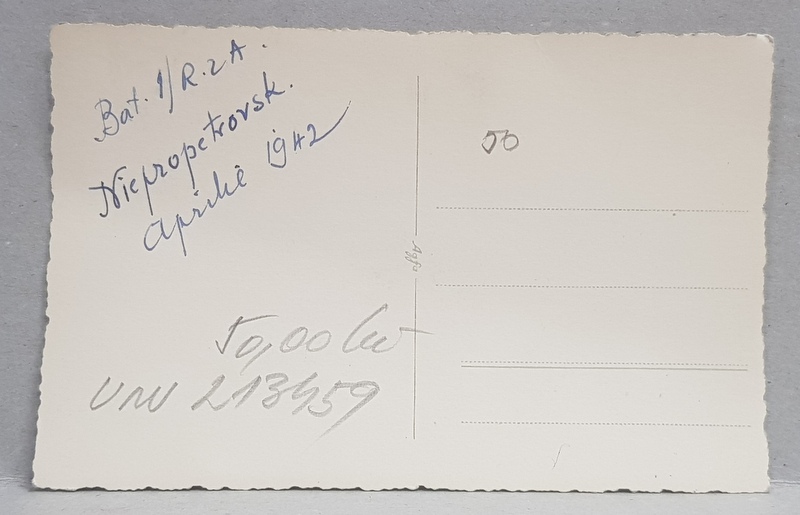 Bat. 1/R.2A.
Niepropetrovsk.
Aprilie 1942
50
Agfa
50,00 lei
UNV 213459